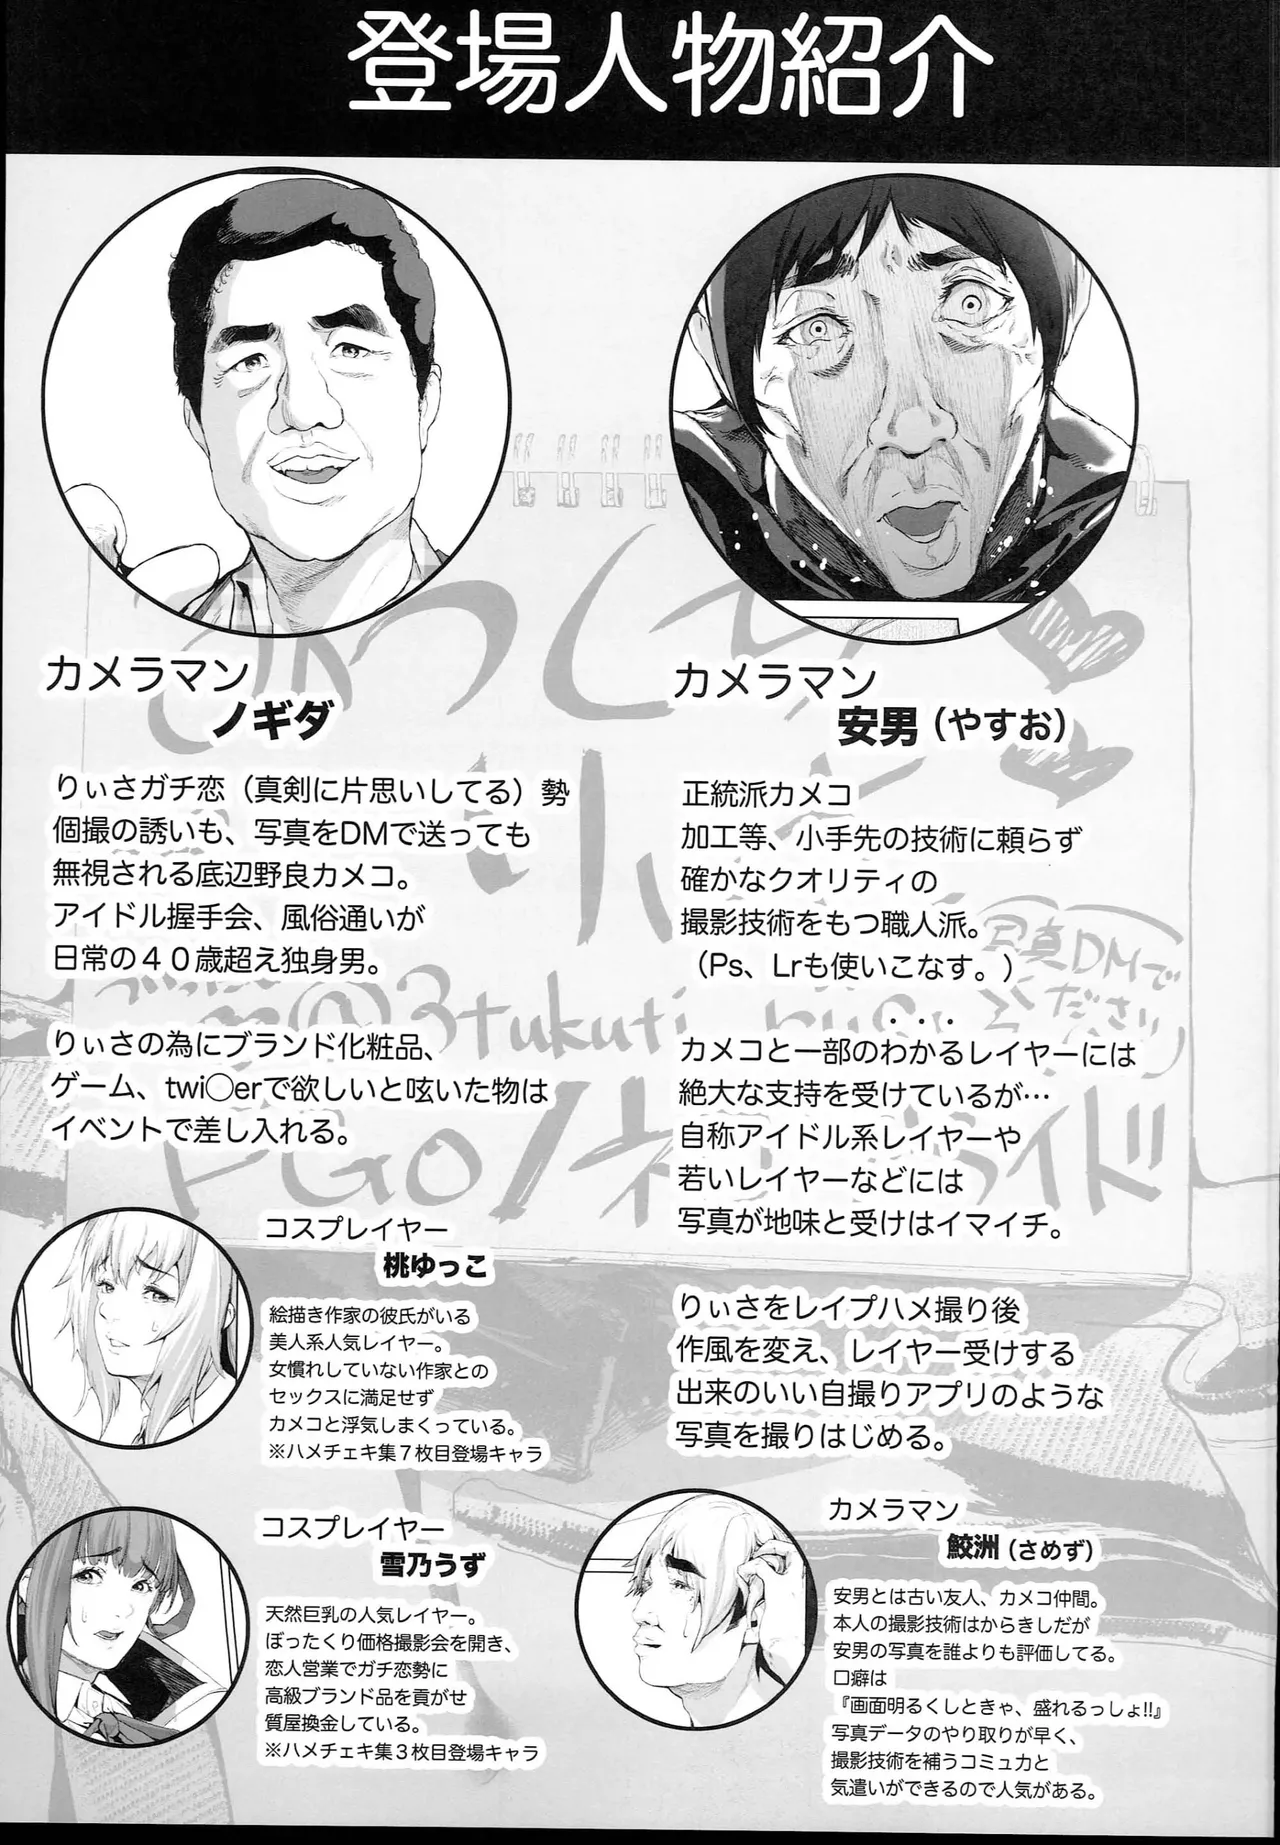 登場人物紹介
カメラマン
ノギダ
りぃさガチ恋（真剣に片思いしてる）勢
個撮の誘いも、写真をDMで送っても
無視される底辺野良カメコ。
アイドル握手会、風俗通いが
日常の４０歳超え独身男。
りぃさの為にブランド化粧品、
ゲーム、twi〇erで欲しいと呟いた物は
イベントで差し入れる。
カメラマン
安男（やすお）
正統派カメコ
加工等、小手先の技術に頼らず
確かなクオリティの
撮影技術をもつ職人派。
（Ps、Lrも使いこなす。）
カメコと一部のわかるレイヤーには
絶大な支持を受けているが…
自称アイドル系レイヤーや
若いレイヤーなどには
写真が地味と受けはイマイチ。
りぃさをレイプハメ撮り後
作風を変え、レイヤー受けする
出来のいい自撮りアプリのような
写真を撮りはじめる。
コスプレイヤー
桃ゆっこ
絵描き作家の彼氏がいる
美人系人気レイヤー。
女慣れしていない作家との
セックスに満足せず
カメコと浮気しまくっている。
※ハメチェキ集７枚目登場キャラ
コスプレイヤー
雪乃うず
天然巨乳の人気レイヤー。
ぼったくり価格撮影会を開き、
恋人営業でガチ恋勢に
高級ブランド品を貢がせ
質屋換金している。
※ハメチェキ集３枚目登場キャラ
カメラマン
鮫洲（さめず）
安男とは古い友人、カメコ仲間。
本人の撮影技術はからきしだが
安男の写真を誰よりも評価してる。
口癖は
『画面明るくしときゃ、盛れるっしょ!!』
写真データのやり取りが早く、
撮影技術を補うコミュ力と
気遣いができるので人気がある。
写真DMで
ください
@3tukuti